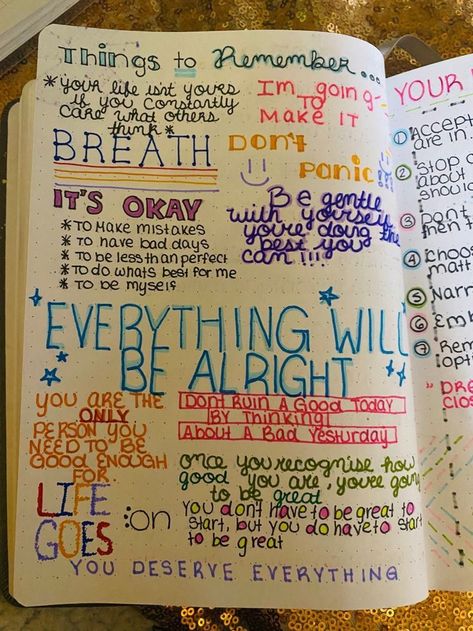 Things to Remember...
*your life isn't yours
if you constantly
care what others
think*
I'm going
TO
MAKE IT
BREATH
DON't
PANIC!
IT'S OKAY
* TO MAKE MISTAKES
* TO have BAD DAYS
* TO be less than perfect
* TO do whats best for me
* TO be myself
Be gentle
with yourself
you're doing the
best you
can!!!
EVERYTHING WILL
BE ALRIGHT
YOU ARE THE
ONLY
PERSON YOU
NEED TO BE
GOOD ENOUGH
FOR
DONT RUIN A GOOD TODAY
BY THINKING
ABOUT A BAD YESTURDAY
once you recognise how
good you are, you're going
to be great
LIFE
GOES
:on
You don't have to be great to
start, but you do have to start
to be great
YOU DESERVE EVERYTHING
YOUR
1 Accept
are in
2 Stop
about
shoul
3 Dont
men t
4 Choos
mat
5 Narr
6 Emb
7 Rem
opti
"DRE
CLOS